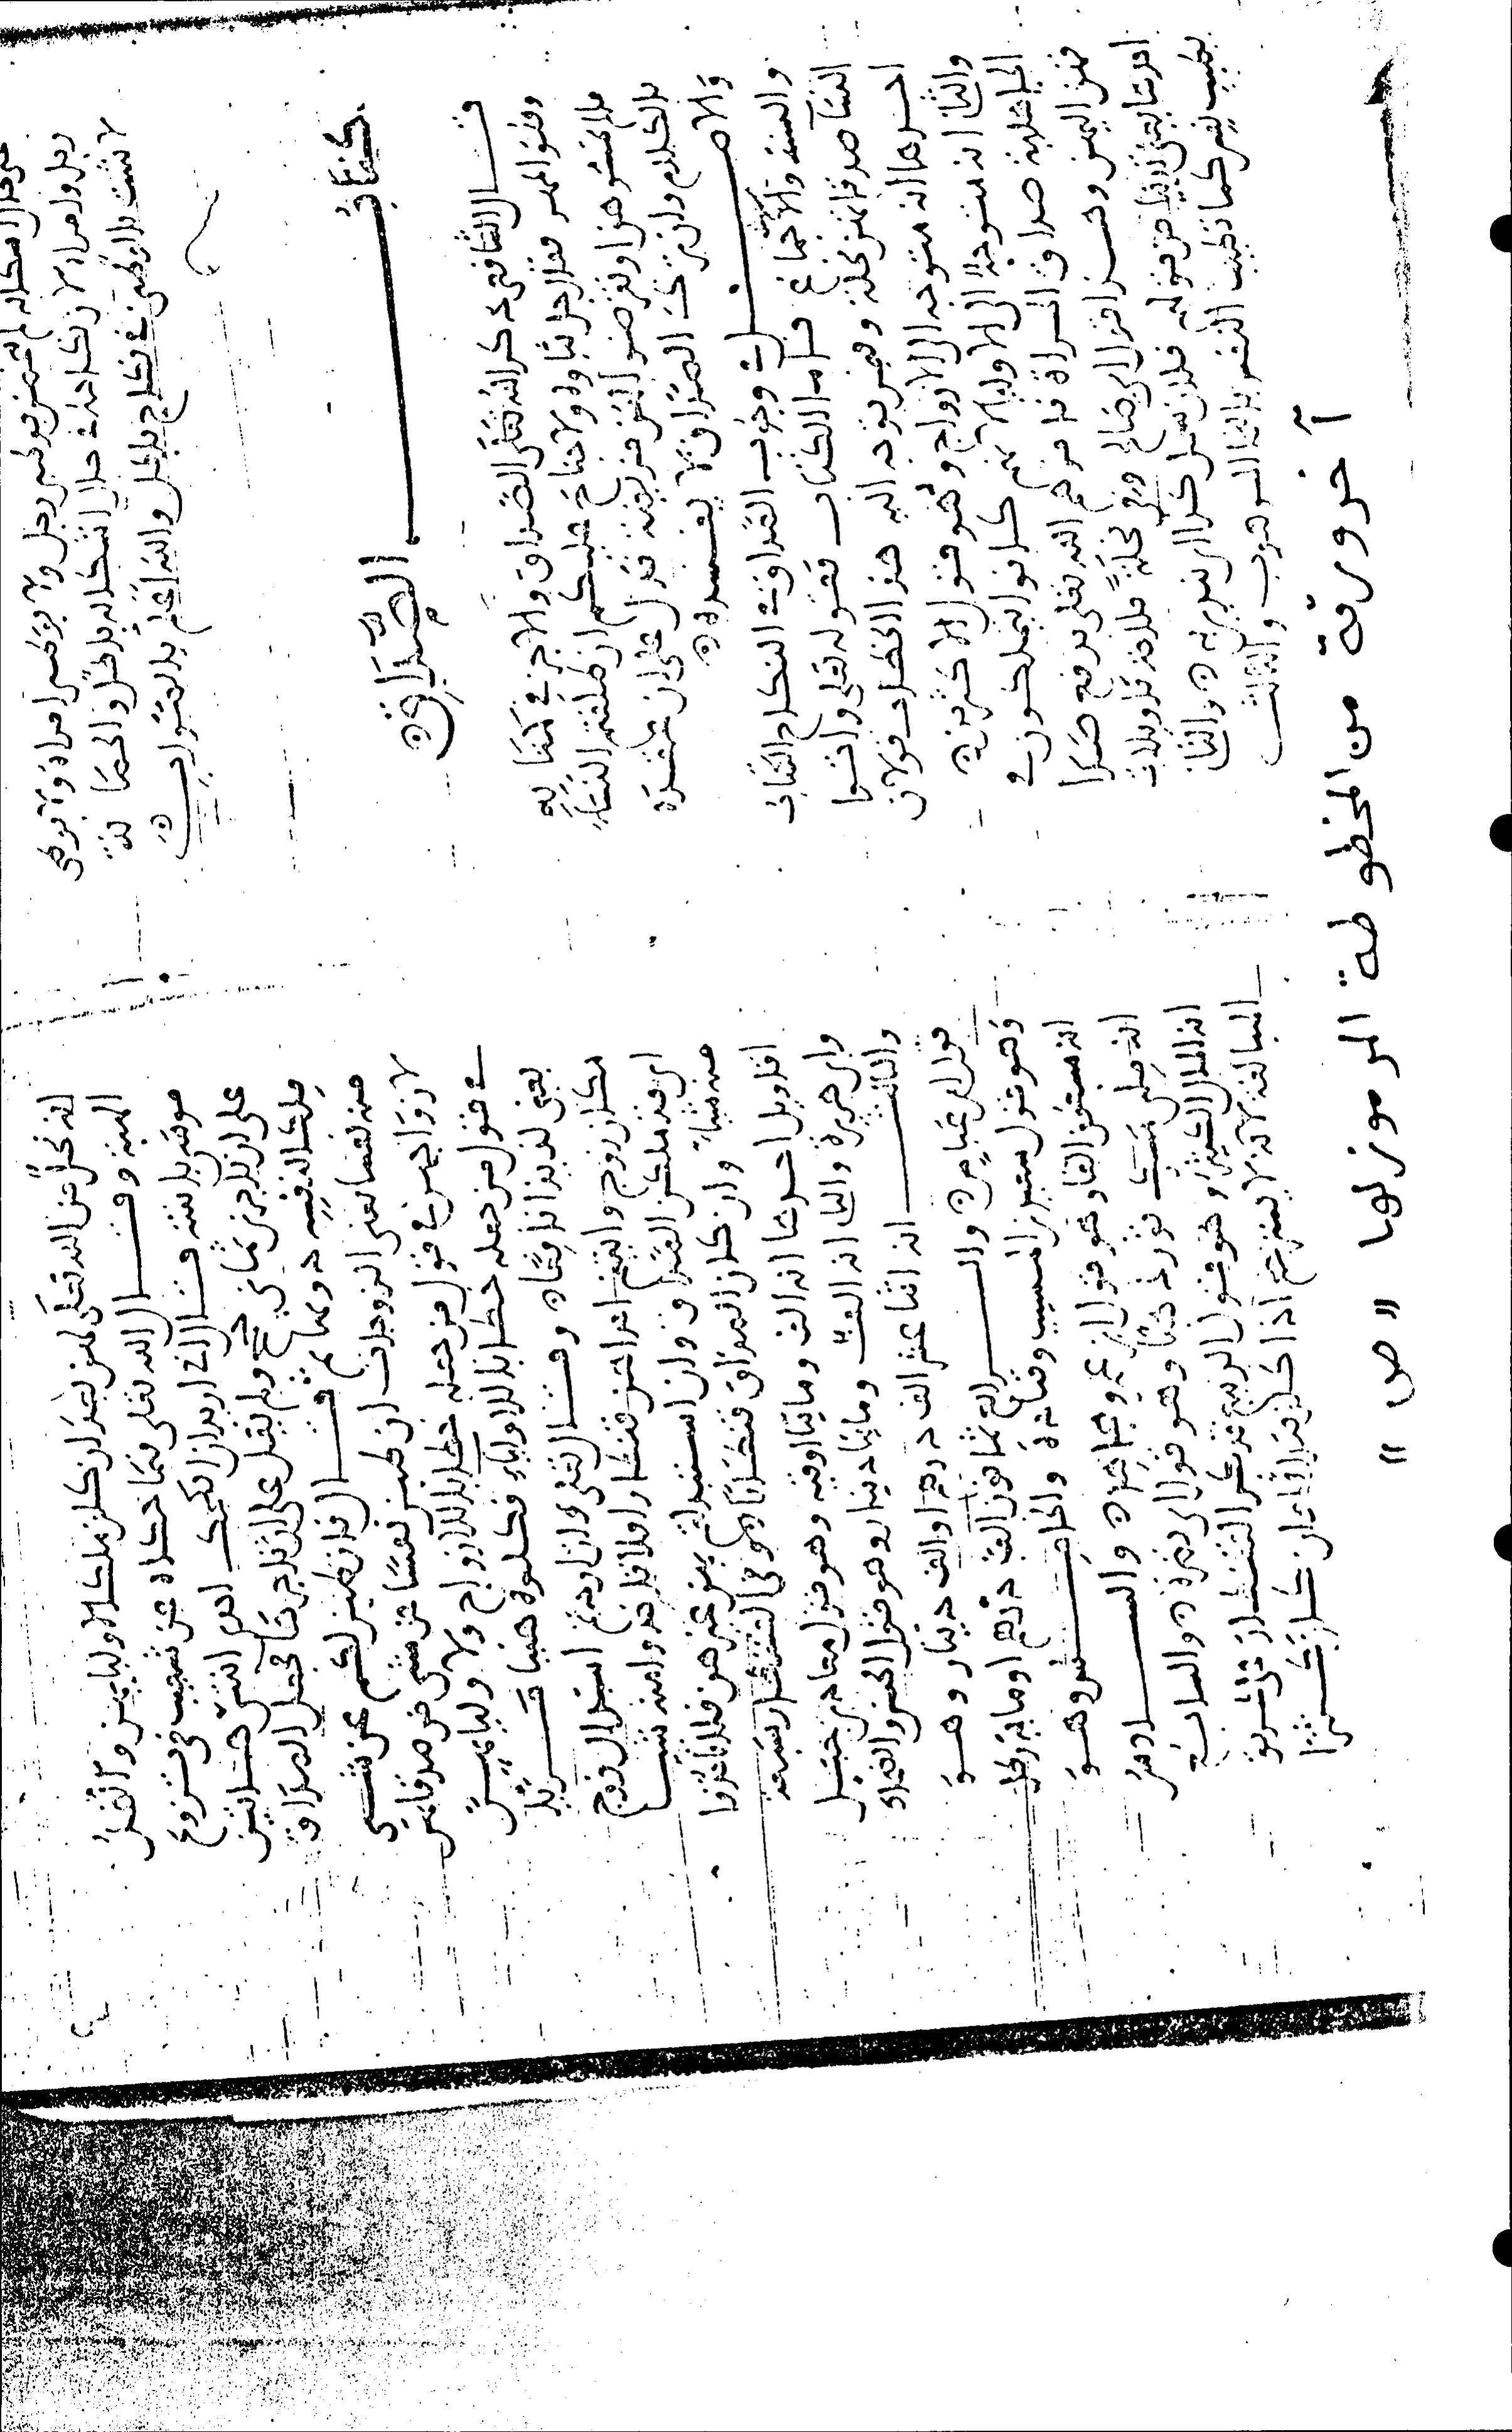 على حال اشكاله لم يتميز بوطئ رجل ولا بوطئ امراة
رجل او امراة لان نكاحه في حال اشكاله باطل
لا تثبت بالوطئ في نكاح باطل والله اعلم بالصواب
كتاب الصداق
قال الشافعي ذكر الله تعالى الصداق والاجر في كتابه
وهو المهر فقال جل ثناوه لا جناح عليكم ان طلقتم النساء
ما لم تمسوهن او تفرضوا لهن فريضة فدل على ان عقدة
بالكلام وان ترك الصداق لا يفسده
والاصل في وجوب الصداق في النكاح الكتاب
والسنة والاجماع فاما الكتاب فقوله تعالى واتوا
النسا صدقاتهن نحلة وفيمن توجه اليه هذا الخطاب قولان
احدهما انه متوجه الى الازواج وهو قول الاكثرين
والثاني انه متوجه الى الاوليا لانهم كانوا يتملكون في
الجاهلية صداق المراة فامرهم الله تعالى بدفع صداقهن
اليهن وهذا قول ابي صالح وفي نحلة ثلاثة تاويلات
احدها يعني تدينا من قولهم فلان ينتحل كذا اي يتدين به والثاني
بطيب نفس كما تطيب النفس بالنحل الموهوب والثالث
انه نحل من الله تعالى لهن بعد ان كان ملكا لاوليايهن والنحل
الهبة وقال الله تعالى فيما حكاه عن شعيب في تزويج
موسى بابنته قال اني اريد ان انكحك احدى ابنتي هاتين
على ان تاجرني ثماني حجج ولم يقل على ان تاجرها فجعل الصداق
ملكا لنفسه دونها ثم قال فان طبن لكم عن شيء
منه نفسا يعني الزوجات ان طبن نفسا عن شيء من صدقاتهن
لازواجهن في قول من جعله خطابا للازواج ولاوليايهن
في قول من جعله خطابا للاولياء فكلوه هنيا مريا
يعني لذيذا نافعا وقال تعالى وان اردتم استبدال زوج
مكان زوج واتيتم احداهن قنطارا فلا تاخذوا منه شيا
اي قد ملكن الصداق وان استبدلتم بهن غيرهن فلا تاخذوا
منه شيا وان كان الصداق قنطارا وفي القنطار سبعة
اقاويل احدها انه الف ومايتا اوقية وهو قول معاذ بن جبل
وابي هريرة والثاني انه الف ومايتا دينار وهو قول الحسن والضحاك
والثالث انه اثنا عشر الف درهم او الف دينار وهو
قول ابن عباس والرابع ثمانون الف درهم او ماية رطل
وهو قول سعيد بن المسيب وقتادة والخامس
انه سبعون الفا وهو قول ابن عمر ومجاهد والسادس
انه ملء مسك ثور ذهبا وهو قول ابي نضرة والسابع
انه المال الكثير وهو قول الربيع فذكر القنطار على طريق
المبالغة لانه لا يسترجع اذا كان صداقا وان كان كثيرا
آخر ورقة من المخطوطة المرموز لها "ص"